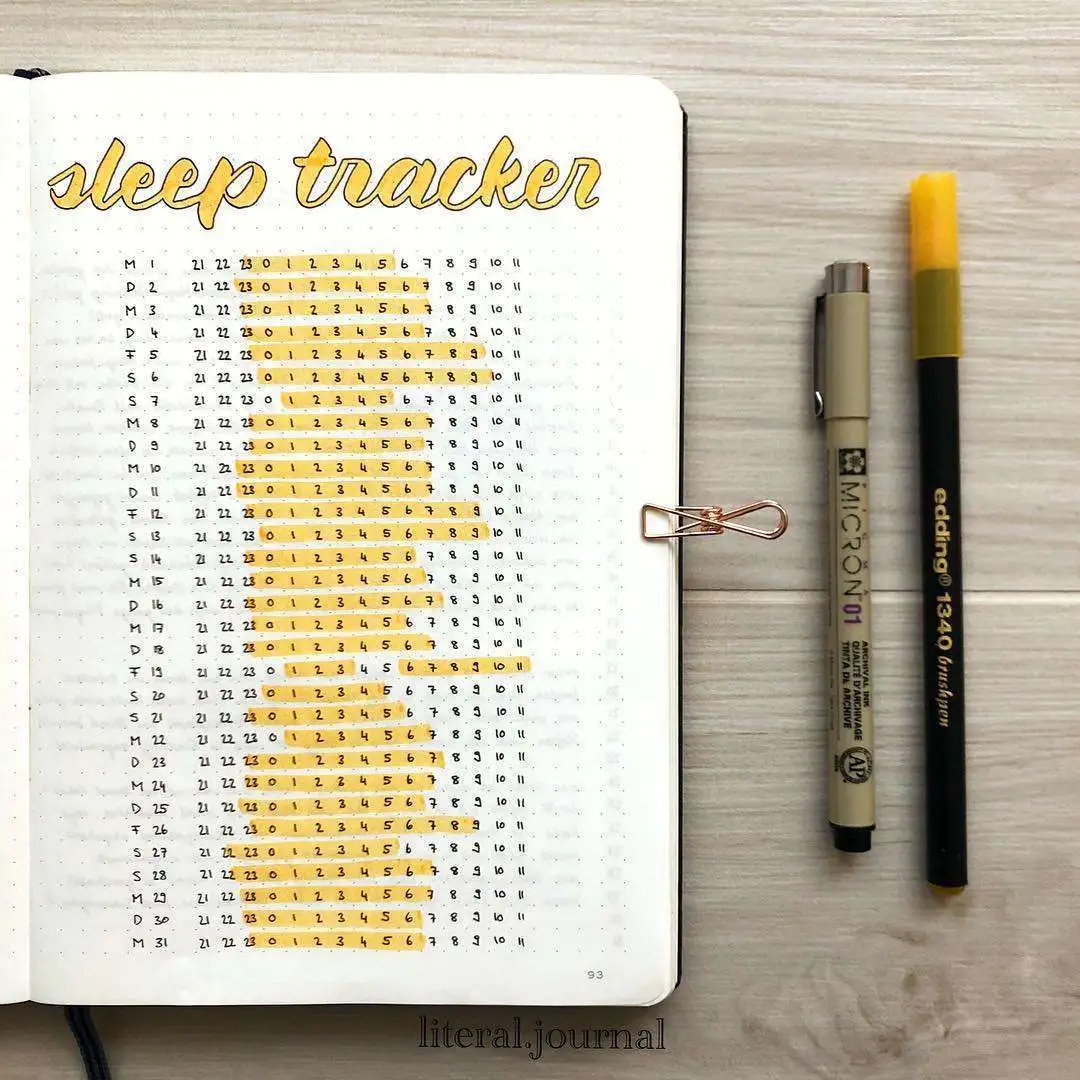 sleep tracker
M 1 21 22 23 0 1 2 3 4 5 6 7 8 9 10 11
D 2 21 22 23 0 1 2 3 4 5 6 7 8 9 10 11
M 3 21 22 23 0 1 2 3 4 5 6 7 8 9 10 11
D 4 21 22 23 0 1 2 3 4 5 6 7 8 9 10 11
F 5 21 22 23 0 1 2 3 4 5 6 7 8 9 10 11
S 6 21 22 23 0 1 2 3 4 5 6 7 8 9 10 11
S 7 21 22 23 0 1 2 3 4 5 6 7 8 9 10 11
M 8 21 22 23 0 1 2 3 4 5 6 7 8 9 10 11
D 9 21 22 23 0 1 2 3 4 5 6 7 8 9 10 11
M 10 21 22 23 0 1 2 3 4 5 6 7 8 9 10 11
D 11 21 22 23 0 1 2 3 4 5 6 7 8 9 10 11
F 12 21 22 23 0 1 2 3 4 5 6 7 8 9 10 11
S 13 21 22 23 0 1 2 3 4 5 6 7 8 9 10 11
S 14 21 22 23 0 1 2 3 4 5 6 7 8 9 10 11
M 15 21 22 23 0 1 2 3 4 5 6 7 8 9 10 11
D 16 21 22 23 0 1 2 3 4 5 6 7 8 9 10 11
M 17 21 22 23 0 1 2 3 4 5 6 7 8 9 10 11
D 18 21 22 23 0 1 2 3 4 5 6 7 8 9 10 11
F 19 21 22 23 0 1 2 3 4 5 6 7 8 9 10 11
S 20 21 22 23 0 1 2 3 4 5 6 7 8 9 10 11
S 21 21 22 23 0 1 2 3 4 5 6 7 8 9 10 11
M 22 21 22 23 0 1 2 3 4 5 6 7 8 9 10 11
D 23 21 22 23 0 1 2 3 4 5 6 7 8 9 10 11
M 24 21 22 23 0 1 2 3 4 5 6 7 8 9 10 11
D 25 21 22 23 0 1 2 3 4 5 6 7 8 9 10 11
F 26 21 22 23 0 1 2 3 4 5 6 7 8 9 10 11
S 27 21 22 23 0 1 2 3 4 5 6 7 8 9 10 11
S 28 21 22 23 0 1 2 3 4 5 6 7 8 9 10 11
M 29 21 22 23 0 1 2 3 4 5 6 7 8 9 10 11
D 30 21 22 23 0 1 2 3 4 5 6 7 8 9 10 11
M 31 21 22 23 0 1 2 3 4 5 6 7 8 9 10 11
93
MICRON 01
ARCHIVAL INK
QUALITÉ D'ARCHIVAGE
TINTA DE ARCHIVE
AP
edding® 1340 brushpen
literal.journal